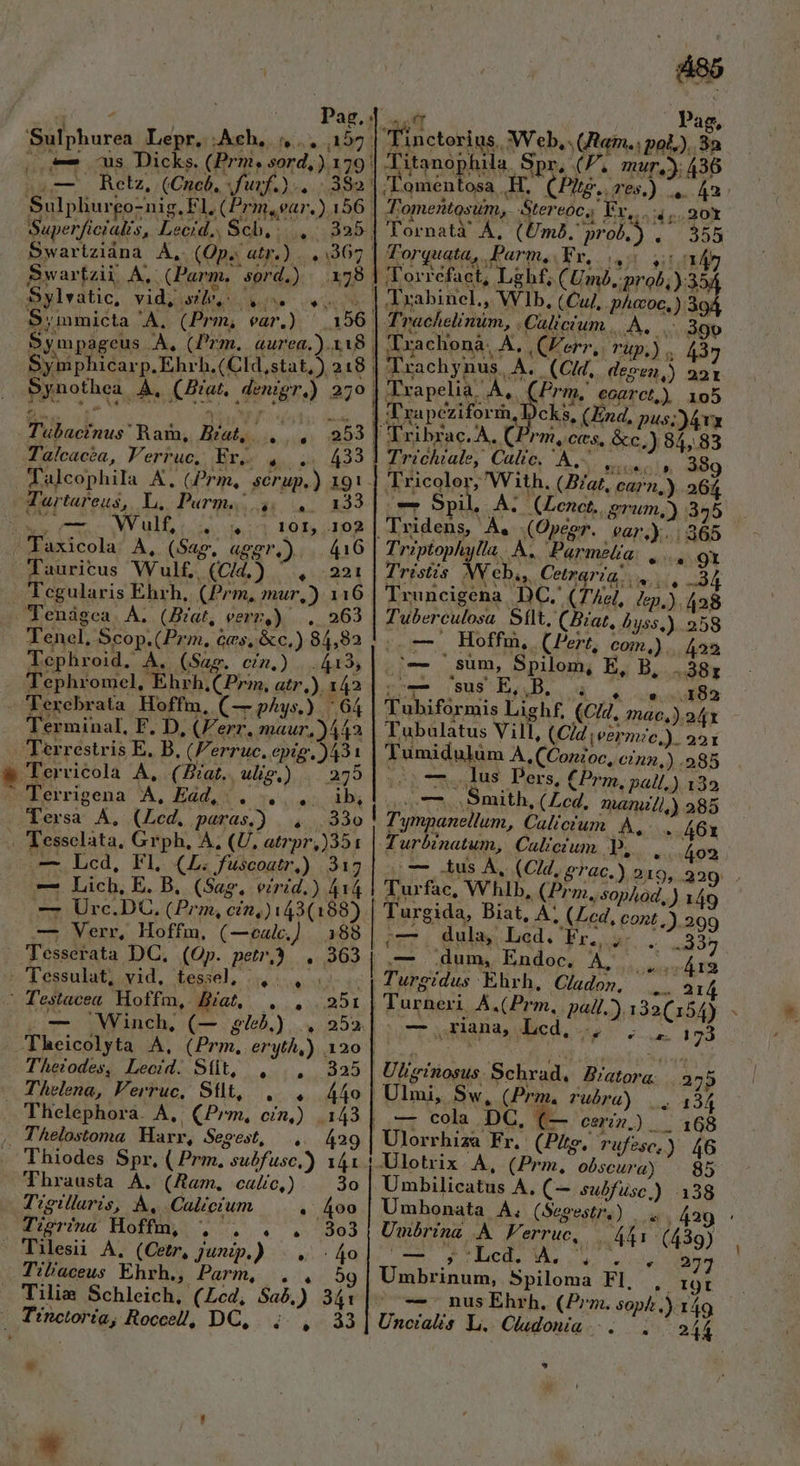 485
Pag.
Sulphurea Lepr. Ach. . . . 157
— us Dicks. (Prm. sord.) 179
— Retz. (Cneb. furf.) . . 382
Sulphureo-nig. Fl. (Prm. var.) 156
Superficialis, Lecid. Sch. . . 325
Swartziana A. (Op. atr.) . . 367
Swartzii A. (Parm. sord.) 178
Sylvatic. vid. silv.
Symmicta A. (Prm. var.) 156
Sympageus A. (Prm. aurea.) 118
Symphicarp. Ehrh. (Cld. stat.) 218
Synothea A. (Biat. denigr.) 270
Tubacinus Ram. Biat. . . . 253
Talcacea, Verruc. Fr. . . . 433
Talcophila A. (Prm. scrup.) 191
Tartareus, L. Parm. . . . 133
— Wulf. . . . 101, 102
Taxicola A. (Sag. aggr.) 416
Tauricus Wulf. (Cld.) . 221
Tegularis Ehrh. (Prm. mur.) 116
Tenagea A. (Biat. verr.) . 263
Tenel. Scop. (Prm. cæs. &c.) 84, 82
Tephroid. A. (Sag. cin.) . 413,
Tephromel. Ehrh. (Prm. atr.) 142
Terebrata Hoffm. (— phys.) 64
Terminal. F. D. (Verr. maur.) 442
Terrestris E. B. (Verruc. epig.) 431
Terricola A. (Biat. ulig.) 275
Terrigena A. Ead. . . . ib.
Tersa A. (Lcd. paras.) . 330
Tesselata, Grph. A. (U. atrpr.) 351
— Lcd. Fl. (L. fuscoatr.) 317
— Lich. E. B. (Sag. virid.) 414
— Urc. DC. (Prm. cin.) 143 (188)
— Verr. Hoffm. (— calc.) 188
Tesserata DC. (Op. petr.) . 363
Tessulat. vid. tessel. . .
Testacea Hoffm. Biat. . . . 251
— Winch. (— gleb.) . 252
Theicolyta A. (Prm. eryth.) 120
Theiodes, Lecid. Sflt. . . 325
Thelena, Verruc. Sflt. . . 440
Thelephora A. (Prm. cin.) . 143
Thelostoma Harr. Segest. . 429
Thiodes Spr. (Prm. subfusc.) 141
Thrausta A. (Ram. calic.) 30
Tigillaris, A. Calicium . 400
Tigrina Hoffm. . . . . 303
Tilesii A. (Cetr. junip.) . . 40
Tiliaceus Ehrh., Parm. . . 59
Tiliæ Schleich. (Lcd. Sab.) 341
Tinctoria, Roccell. DC. . . 33
Pag.
Tinctorius Web. (Ram. pol.) 32
Titanophila Spr. (V. mur.) 436
Tomentosa H. (Pltg. res.) . 42
Tomentosum, Stereoc. Fr. . . 201
Tornata A. (Umb. prob.) . 355
Torquata, Parm. Fr. . . . 147
Torrefact. Lghf. (Umb. prob.) 354
Trabinel., Wlb. (Cul. phæoc.) 394
Trachelinum, Calicium A. . 390
Trachona A. (Verr. rup.) , 437
Trachynus A. (Cld. degen.) 221
Trapelia A. (Prm. coarct.) 105
Trapeziform. Dcks. (End. pus.) 411
Tribrac. A. (Prm. cæs. &c.) 84, 83
Trichiale, Calic. A. . . . 389
Tricolor, With. (Biat. carn.) 264
— Spil. A. (Lenct. grum.) 375
Tridens, A. (Opegr. var.) . 365
Triptophylla A. Parmelia . . 91
Tristis Web. Cetraria . . . 34
Truncigena DC. (Thel. lep.) 428
Tuberculosa Sflt. (Biat. byss.) 258
— Hoffm. (Pert. com.) . 422
— sum, Spilom. E. B. . 381
— sus E. B. . . . . 182
Tubiformis Lighf. (Cld. mac.) 241
Tubulatus Vill. (Cld. vermic.) 221
Tumidulum A. (Conioc. cinn.) 285
— lus Pers. (Prm. pall.) 132
— Smith. (Lcd. manuili.) 285
Tympanellum, Calicium A. . 461
Turbinatum, Calicium P. . . 402
— tus A. (Cld. grac.) 219, 229
Turfac. Whlb. (Prm. sophod.) 149
Turgida, Biat. A. (Lcd. cont.) 299
— dula, Lcd. Fr. . . . 337
— dum, Endoc. A. . . . 412
Turgidus Ehrh. Cladon. . . 214
Turneri A. (Prm. pall.) 132 (154)
— riana, Lcd. . . . 173
Uliginosus Schrad. Biatora 275
Ulmi, Sw. (Prm. rubra) . 134
— cola DC. (— cerin.) . . 168
Ulorrhiza Fr. (Pltg. rufesc.) 46
Ulotrix A. (Prm. obscura) 85
Umbilicatus A. (— subfusc.) 138
Umbonata A. (Segestr.) . . 429
Umbrina A Verruc. . 441 (439)
— , Lcd. A. . . . . 277
Umbrinum, Spiloma Fl. . 191
— nus Ehrh. (Prm. soph.) 149
Uncialis L. Cladonia . . . 244